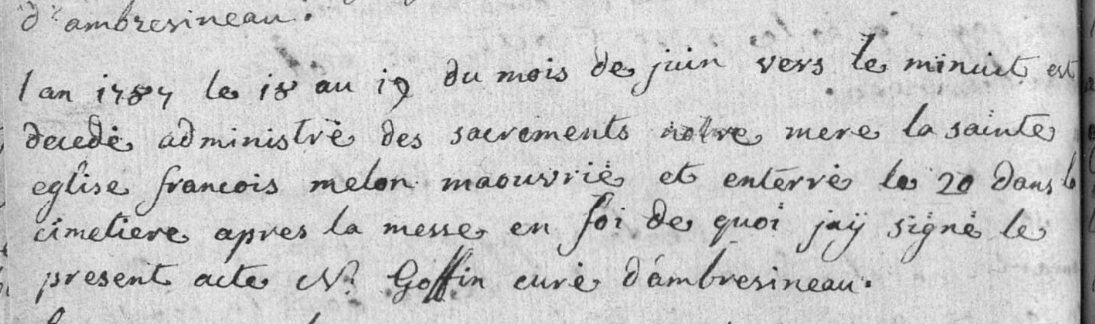 d'ambresineau.
l an 1787 le 18 au 19 du mois de juin vers le minuit est
decedé administré des sacrements notre mere la sainte
eglise francois melon maouvrié et enterré le 20 dans le
cimetiere apres la messe en foi de quoi jaÿ signé le
present acte N. Goffin curé d'ambresineau.